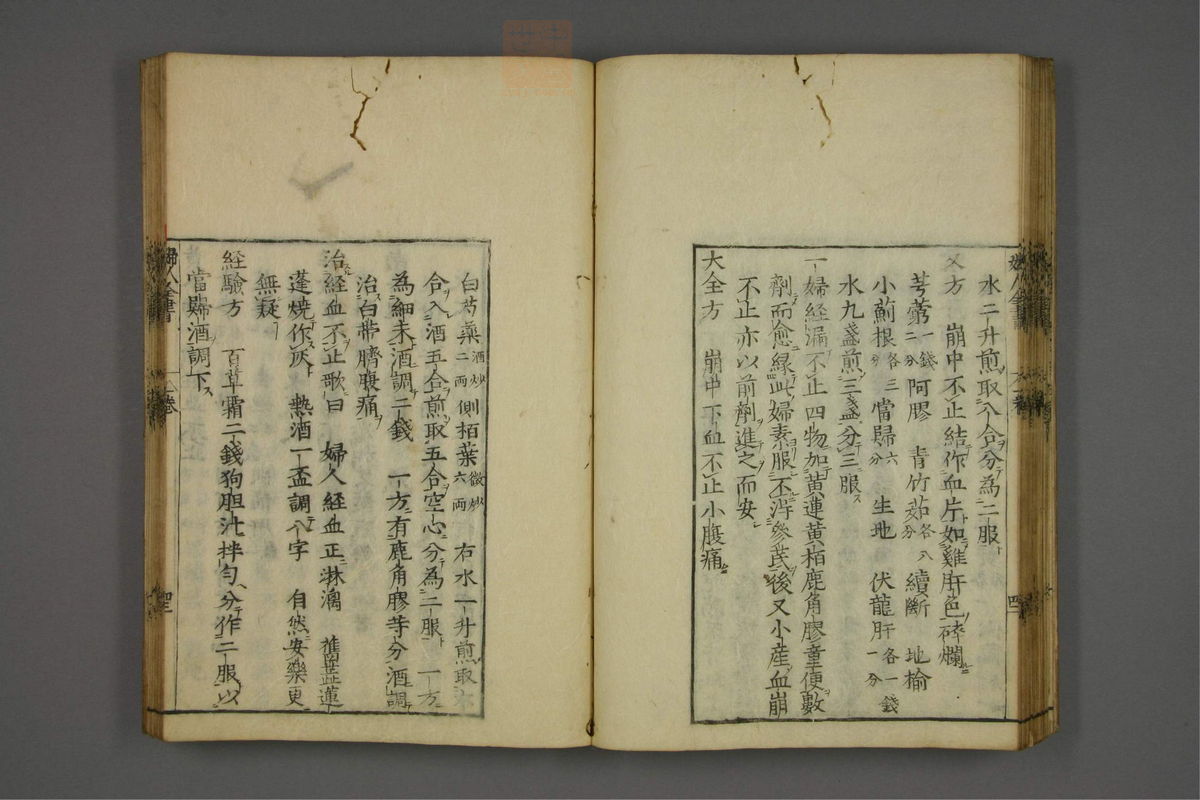 水二升煎取八合分為二服
又方　崩中不止結作血片如雞肝色碎爛
芎藭一錢二分　阿膠　青竹茹各八分　續斷　地榆
小薊根各三分　當歸六分　生地　伏龍肝各一錢一分
水九盞煎三盞分三服
一婦経漏不止四物加黃連黃栢鹿角膠童便數
劑而愈緣此婦素服不淂參芪後又小產血崩
不止亦以前劑進之而安
大全方　崩中下血不止小腹痛
白芍藥二両酒炒側栢葉六両微炒　右水一升煎取六
合入酒五合煎取五合空心分為二服　一方
為細末酒調二錢　一方有鹿角膠等分酒調
治白帶臍腹痛
治経血不止歌曰　婦人経血正淋漓　舊蓮
蓬燒作灰　熱酒一盃調八字　自然安樂更
無疑
経驗方　百草霜二錢狗胆汁拌勻分作二服以
當歸酒調下
婦人全書
卷